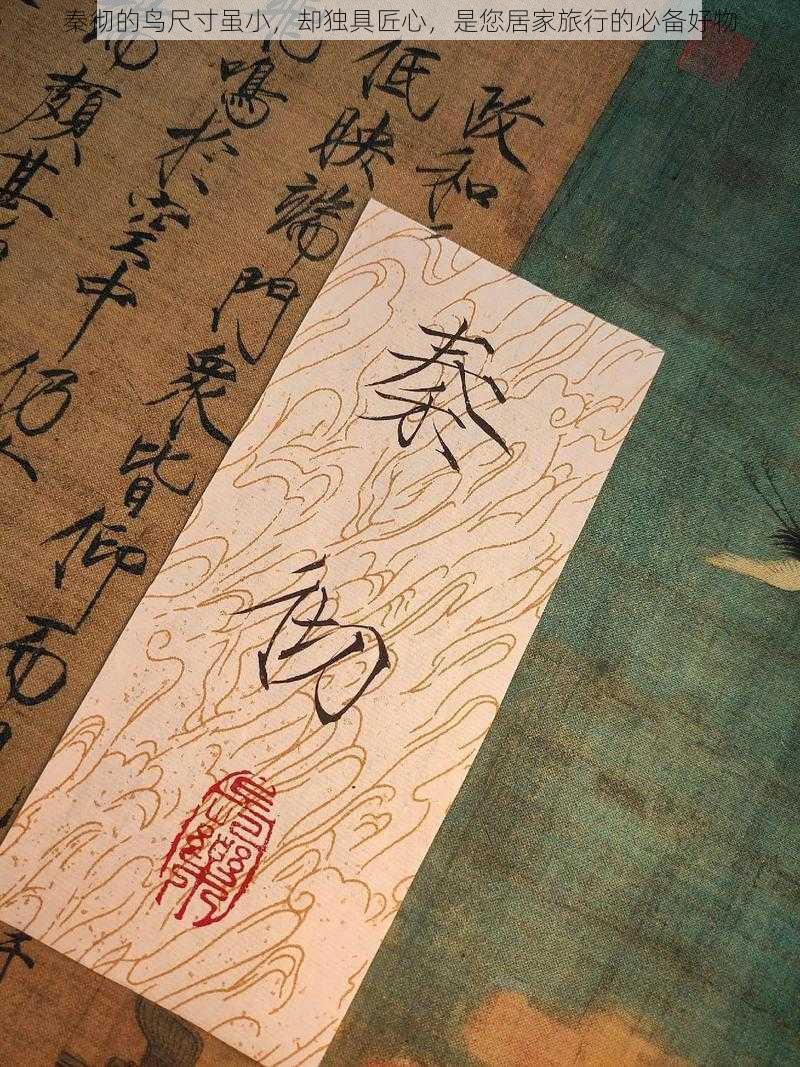 秦彻的鸟尺寸虽小，却独具匠心，是您居家旅行的必备好物
政和
低映端門衆皆仰而
鳴於空中仍
頗甚
秦彻